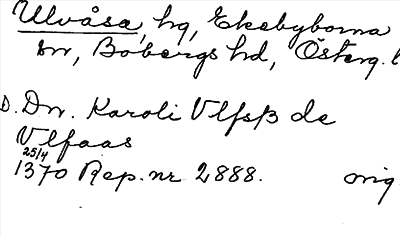 Ulvåsa, hg, Ekebyborna
sn, Bobergs hd, Österg. l
D. Dn. Karoli Vlfsß de
Vlfaas
25/4
1370 Rep. nr 2888. orig